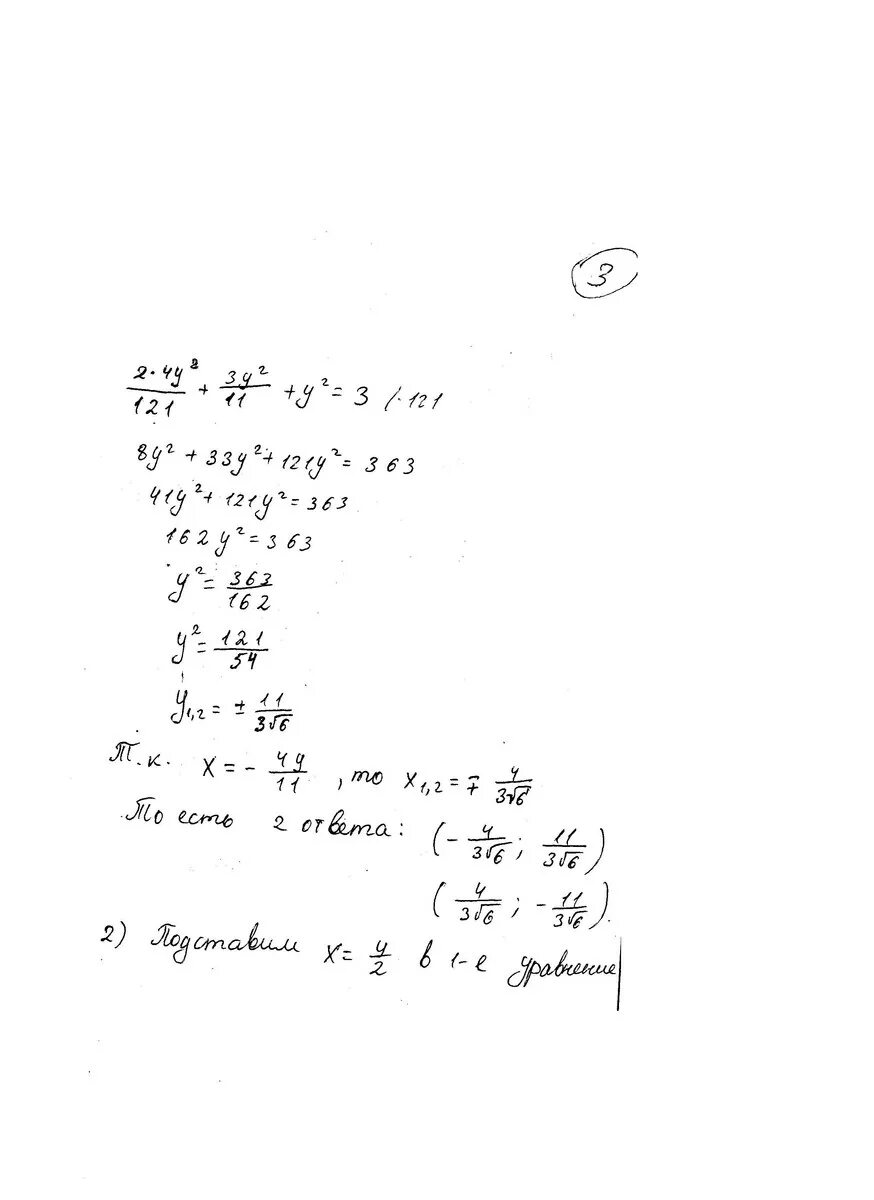 3
2·4y²/121 + 3y²/11 + y² = 3 /·121
8y² + 33y² + 121y² = 363
41y² + 121y² = 363
162y² = 363
y² = 363/162
y² = 121/54
y₁,₂ = ± 11/3√6
Т.к. x = - 4y/11, то x₁,₂ = ∓ 4/3√6
То есть 2 ответа: (- 4/3√6; 11/3√6)
(4/3√6; - 11/3√6).
2) Подставим x = y/2 в 1-е уравнение